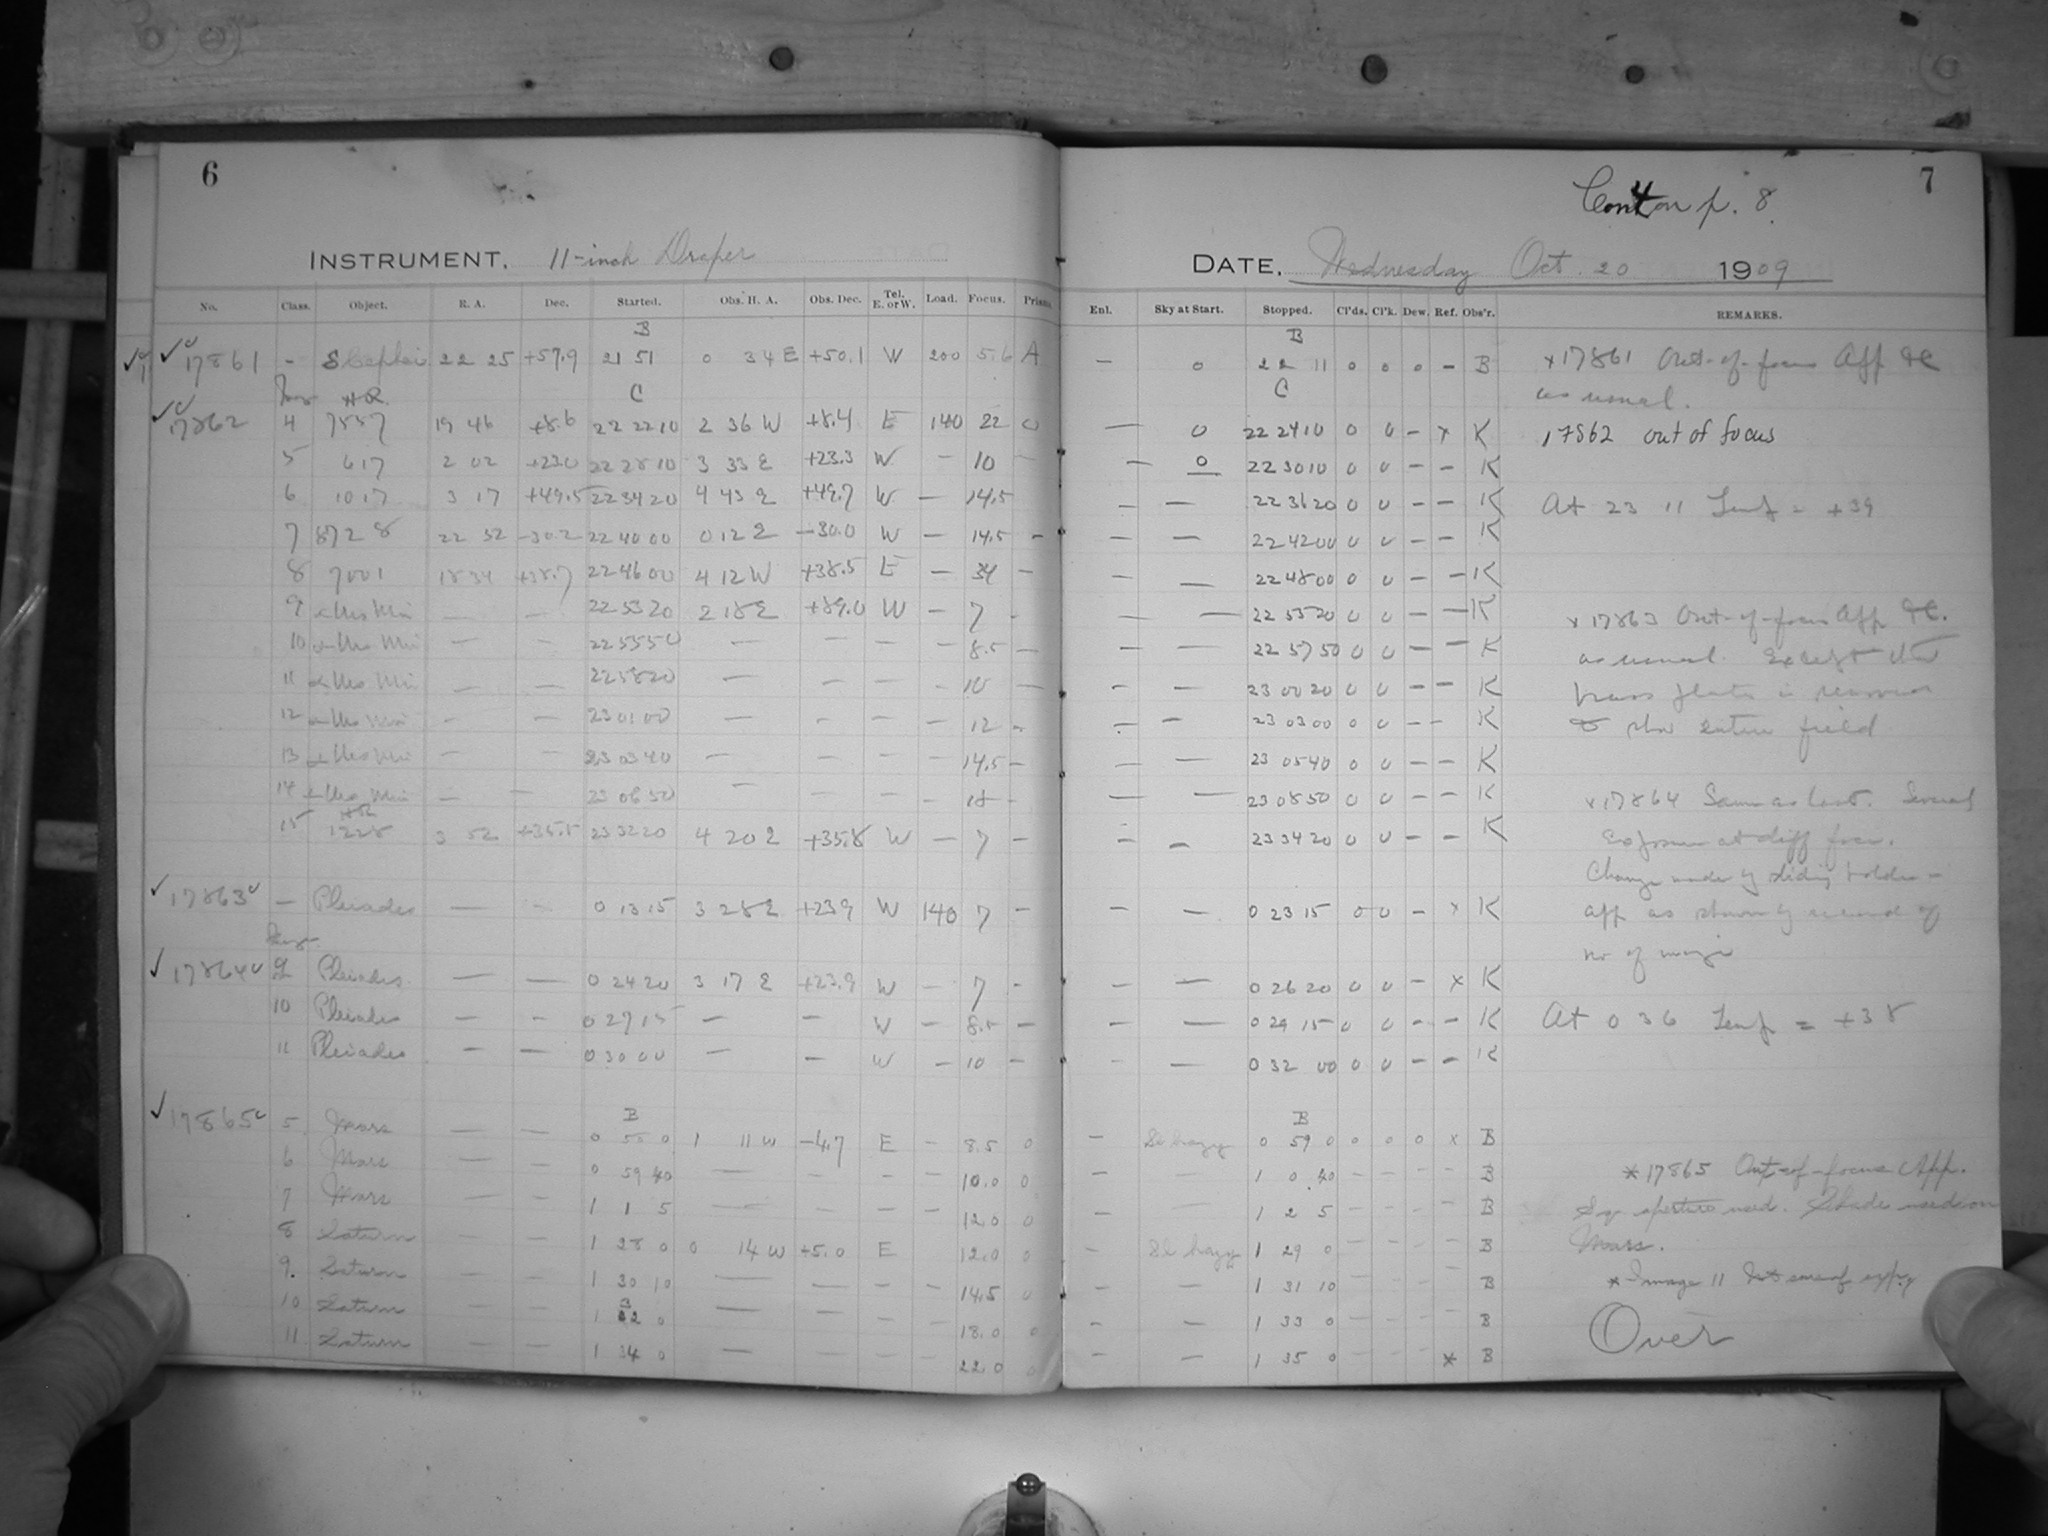 6
INSTRUMENT. 11-inch Draper
No. Class. Object. R. A. Dec. Started. Obs. H. A. Obs. Dec. Tel. E. or W. Load. Focus. Prism
B
17861 - Cephei 22 25 +57.9 21 51 0 34 E +50.1 W 200 5.6 A
C
17862 4 7557 19 46 +8.6 22 22 10 2 36 W +8.4 E 140 22 0
5 617 2 02 +23.0 22 28 10 3 33 E +23.3 W - 10 -
6 1017 3 17 +49.5 22 34 20 4 43 E +49.7 W - 14.5
7 8728 22 52 -30.2 22 40 00 0 12 E -30.0 W - 14.5 -
8 7001 18 34 +38.7 22 46 00 4 12 W +38.5 E - 34 -
9 α Urs Min - - 22 53 20 2 18 E +89.0 W - 7 -
10 α Urs Min - - 22 55 50 - - - - 8.5 -
11 α Urs Min - - 22 58 20 - - - - 10 -
12 α Urs Min - - 23 01 00 - - - - 12 -
13 α Urs Min - - 23 03 40 - - - - 14.5 -
14 α Urs Min - - 23 06 50 - - - - 18 -
HR
15 1228 3 52 +35.5 23 32 20 4 20 E +35.8 W - 7 -
17863 - Pleiades - - 0 13 15 3 28 E +23.9 W 140 7 -
17864 9 Pleiades - - 0 24 20 3 17 E +23.9 W - 7 -
10 Pleiades - - 0 27 15 - - W - 8.5 -
11 Pleiades - - 0 30 00 - - W - 10 -
B
17865 5 Mars - - 0 55 0 1 11 W -4.7 E - 8.5 0
6 Mars - - 0 59 40 - - - - 10.0 0
7 Mars - - 1 1 5 - - - - 12.0 0
8 Saturn - - 1 28 0 0 14 W +5.0 E - 12.0 0
9. Saturn - - 1 30 10 - - - - 14.5 0
10 Saturn - - 1 32 0 - - - - 18.0 0
11 Saturn - - 1 34 0 - - - - 22.0 0
7
Cont on p. 8
DATE. Wednesday Oct. 20 1909
Enl. Sky at Start. Stopped. Cl'ds. Cl'k. Dew. Ref. Obs'r. REMARKS.
B
- 0 22 11 0 0 0 - B x 17861 Out-of-focus App &c
C as usual.
- 0 22 24 10 0 0 - x K 17862 out of focus
- 0 22 30 10 0 0 - - K
- - 22 36 20 0 0 - - K At 23 11 Temp = +39
- - 22 42 00 0 0 - - K
- - 22 48 00 0 0 - - K
- - 22 55 20 0 0 - - K x 17863 Out-of-focus App &c.
- - 22 57 50 0 0 - - K as usual. Except that
- - 23 00 20 0 0 - - K
- - 23 03 00 0 0 - - K to show entire field
- - 23 05 40 0 0 - - K
- - 23 08 50 0 0 - - K x 17864 Same as last. Several
- - 23 34 20 0 0 - - K Exposures at diff foci.
Change made by sliding holder
- - 0 23 15 0 0 - x K app as shown by record of
no of
- - 0 26 20 0 0 - x K
- - 0 29 15 0 0 - - K At 0 36 Temp = +38
- - 0 32 00 0 0 - - K
B
- Sl hazy 0 59 0 0 0 0 x B
- - 1 0 40 - - - - B * 17865 Out-of-focus App.
- - 1 2 5 - - - - B Sq. aperture used. Shade used on
- Sl hazy 1 29 0 - - - - B Mars.
- - 1 31 10 - - - B * Image 11
- - 1 33 0 - - - - B Over
- - 1 35 0 - - - * B